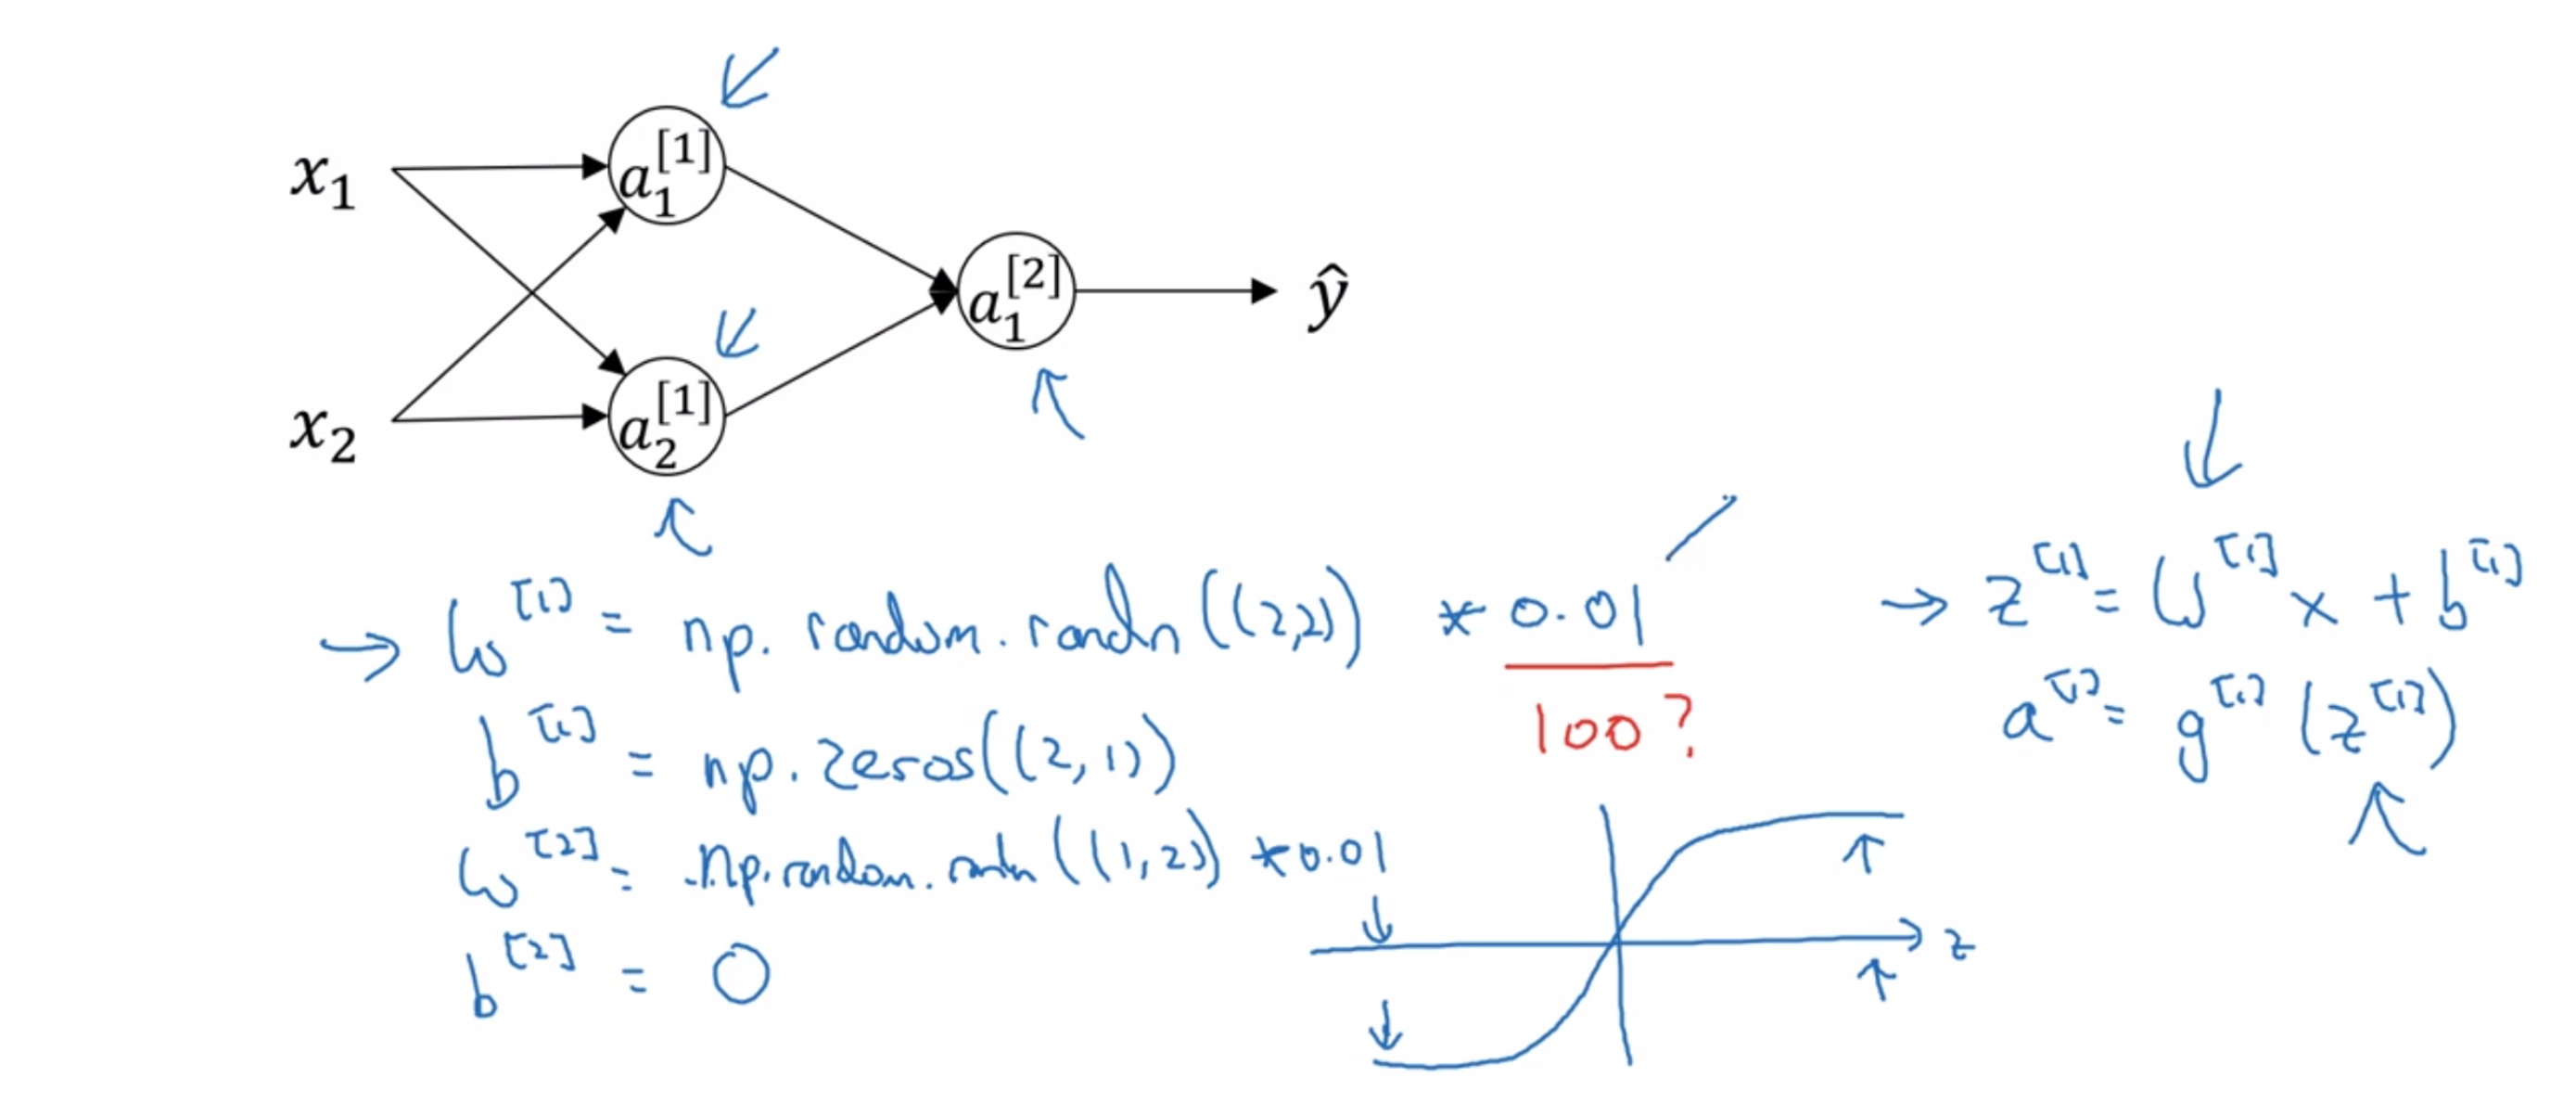 x₁
a₁^[1]
x₂
a₂^[1]
a₁^[2]
ŷ
→ W^[1] = np.random.randn((2,2)) * 0.01
100?
b^[1] = np.zeros((2,1))
W^[2] = np.random.randn((1,2)) * 0.01
b^[2] = 0
→ z^[1] = W^[1] x + b^[1]
a^[1] = g^[1](z^[1])
z